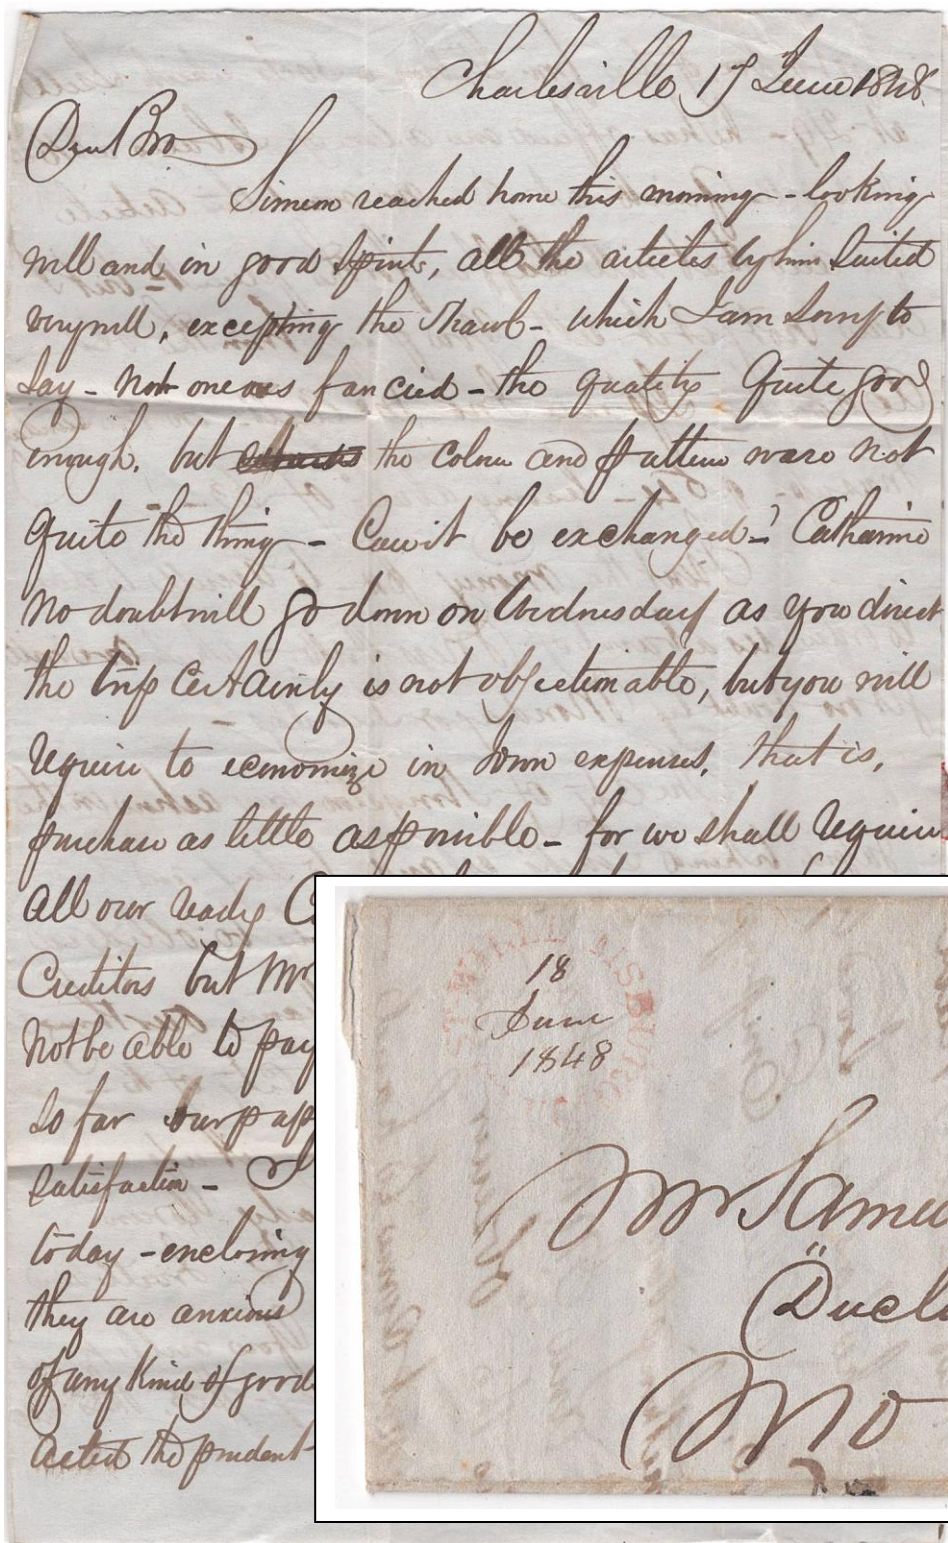 Charlesville 17 June 1848.
Dear Bro
Simeon reached home this morning - looking
well and in good spirits, all the articles by him suited
very well, excepting the shawl - which I am sorry to
say - not one was fancied - the quality quite good
enough. but the colour and pattern were not
quite the thing - Can it be exchanged? Catharine
no doubt will go down on Wednesday as you direct
the trip certainly is not objectionable, but you will
require to economize in down expenses. That is,
purchase as little as possible - for we shall require
all our ready
Creditors but Mr
not be able to pay
so far our pap
satisfaction - I
today - enclosing
they are anxious
of any kind of good
acted the prudent
WILLI SBURG
18
June
1848
Mr Samu
Duclo
Mo